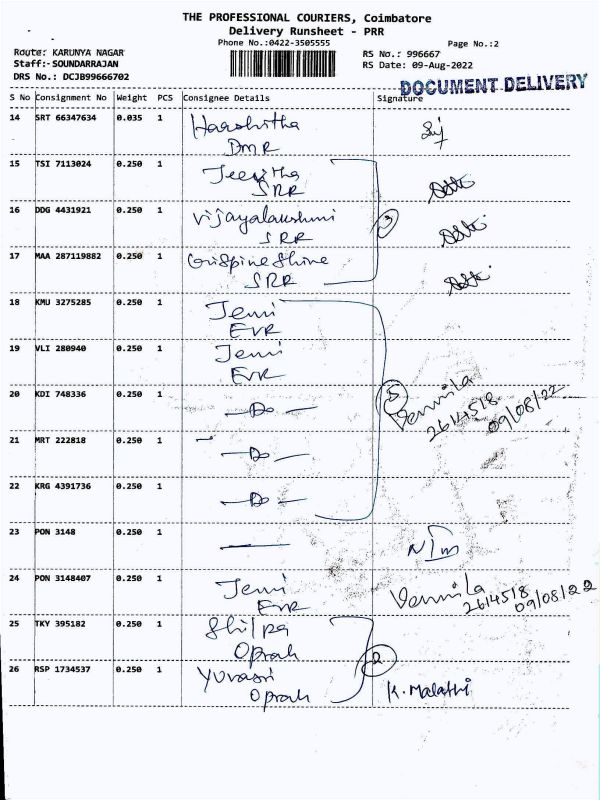 THE PROFESSIONAL COURIERS, Coimbatore
Delivery Runsheet - PRR
Phone No.:0422-3505555
Page No.:2
Route: KARUNYA NAGAR
RS No.: 996667
Staff:- SOUNDARRAJAN
RS Date: 09-Aug-2022
DRS No.: DCJB99666702
DOCUMENT DELIVERY
S No Consignment No Weight PCS Consignee Details Signature
14 SRT 66347634 0.035 1 Harshitha
DMR
15 TSI 7113024 0.250 1 Jeevitha
SRR
16 DDG 4431921 0.250 1 Vijayalakshmi
SRR
3
17 MAA 287119882 0.250 1 Crispine Shine
SRR
18 KMU 3275285 0.250 1 Jemi
EVR
19 VLI 280940 0.250 1 Jemi
EVR
20 KDI 748336 0.250 1 —Do—
5 Vennila
2614518
09/08/22
21 MRT 222818 0.250 1 —Do—
22 KRG 4391736 0.250 1 —Do—
23 PON 3148 0.250 1 —
24 PON 3148407 0.250 1 Jemi
EVR
Vennila
2614518
09/08/22
25 TKY 395182 0.250 1 Shilpa
Oprah
2
26 RSP 1734537 0.250 1 Yuvasri
Oprah
K. Malathi